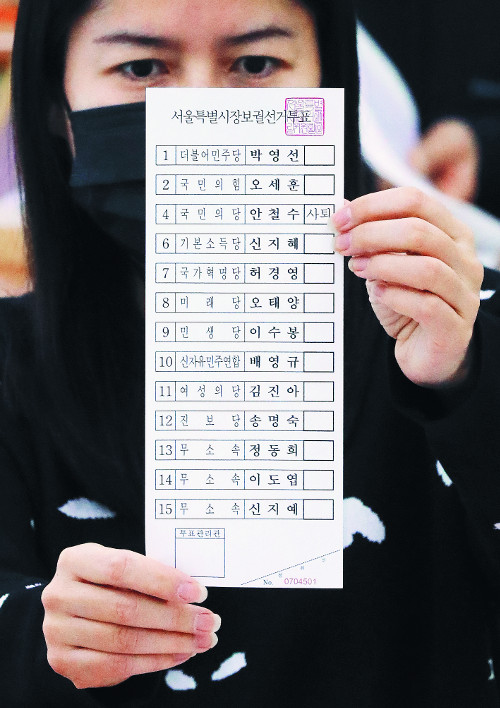 서울특별시장보궐선거투표
1 더불어민주당 박영선
2 국민의힘 오세훈
4 국민의당 안철수 사퇴
6 기본소득당 신지혜
7 국가혁명당 허경영
8 미래당 오태양
9 민생당 이수봉
10 신자유민주연합 배영규
11 여성의당 김진아
12 진보당 송명숙
13 무소속 정동희
14 무소속 이도엽
15 무소속 신지예
투표관리관
No. 0704501